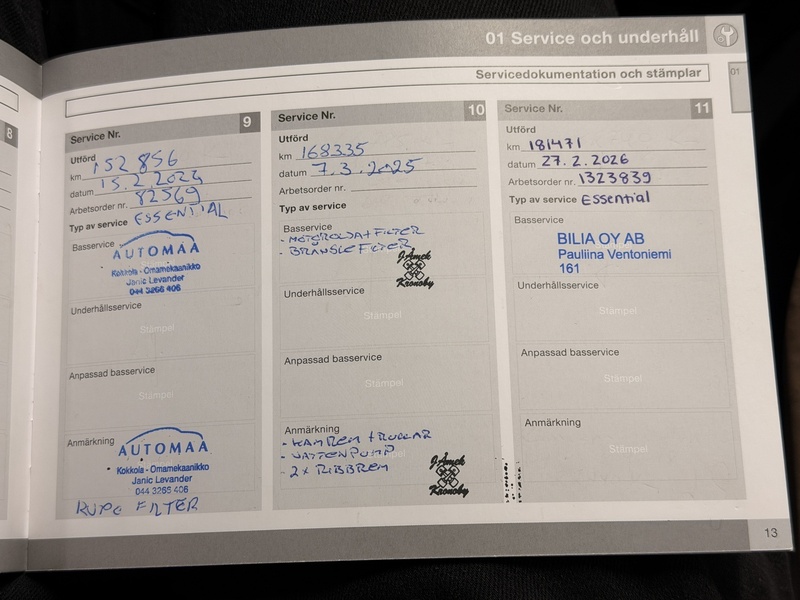 01 Service och underhåll
Servicedokumentation och stämplar
01
8
Service Nr. 9
Utförd
km 152 856
datum 15.2.2024
Arbetsorder nr. 82569
Typ av service ESSENTIAL
Basservice
AUTOMAA
Kokkola - Omamekaanikko
Janic Levander
044 3266 406
Underhållsservice
Stämpel
Anpassad basservice
Stämpel
Anmärkning
AUTOMAA
Kokkola - Omamekaanikko
Janic Levander
044 3266 406
FILTER
Service Nr. 10
Utförd
km 168335
datum 7.3.2025
Arbetsorder nr.
Typ av service
Basservice
- MOTOROLJA + FILTER
- BRÄNSLEFILTER
J-Åmek
Kronoby
Underhållsservice
Stämpel
Anpassad basservice
Stämpel
Anmärkning
- KAMREM + RULLAR
- VATTENPUMP
- 2x RIBBREM
J-Åmek
Kronoby
Service Nr. 11
Utförd
km 181471
datum 27.2.2026
Arbetsorder nr. 1323839
Typ av service Essential
Basservice
BILIA OY AB
Pauliina Ventoniemi
161
Underhållsservice
Stämpel
Anpassad basservice
Stämpel
Anmärkning
Stämpel
13